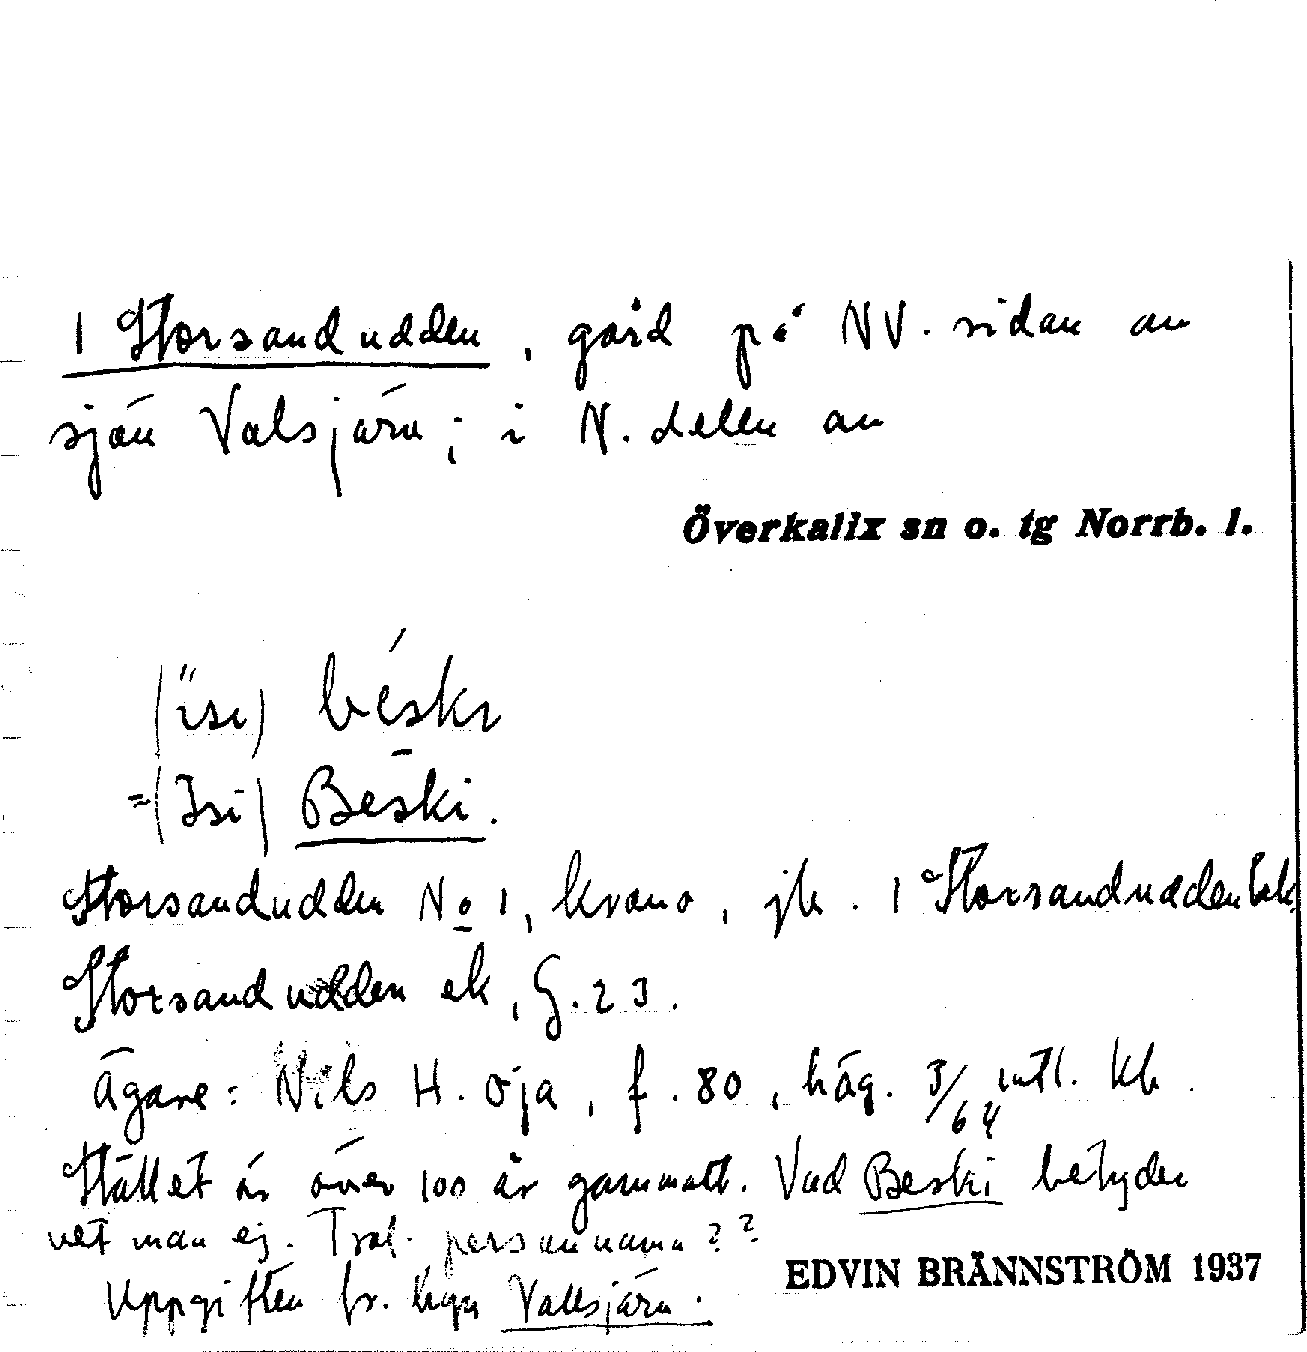 1 Storsandudden, gård på NV. sidan av
sjön Valsjärv; i N. delen av
Överkalix sn o. tg Norrb. l.
(isi) béski
=(Isi) Beski.
Storsandudden No 1, krono, jb. 1 Storsandudden
Storsandudden ek, G. 23.
Ägare: Nils H. Öja, f. 80, häg. 3/64 mtl. kb.
Stället är över 100 år gammalt. Vad Beski betyder
vet man ej. Trol. personnamn??
EDVIN BRÄNNSTRÖM 1937
Uppgiften fr. byn Vallsjärv.